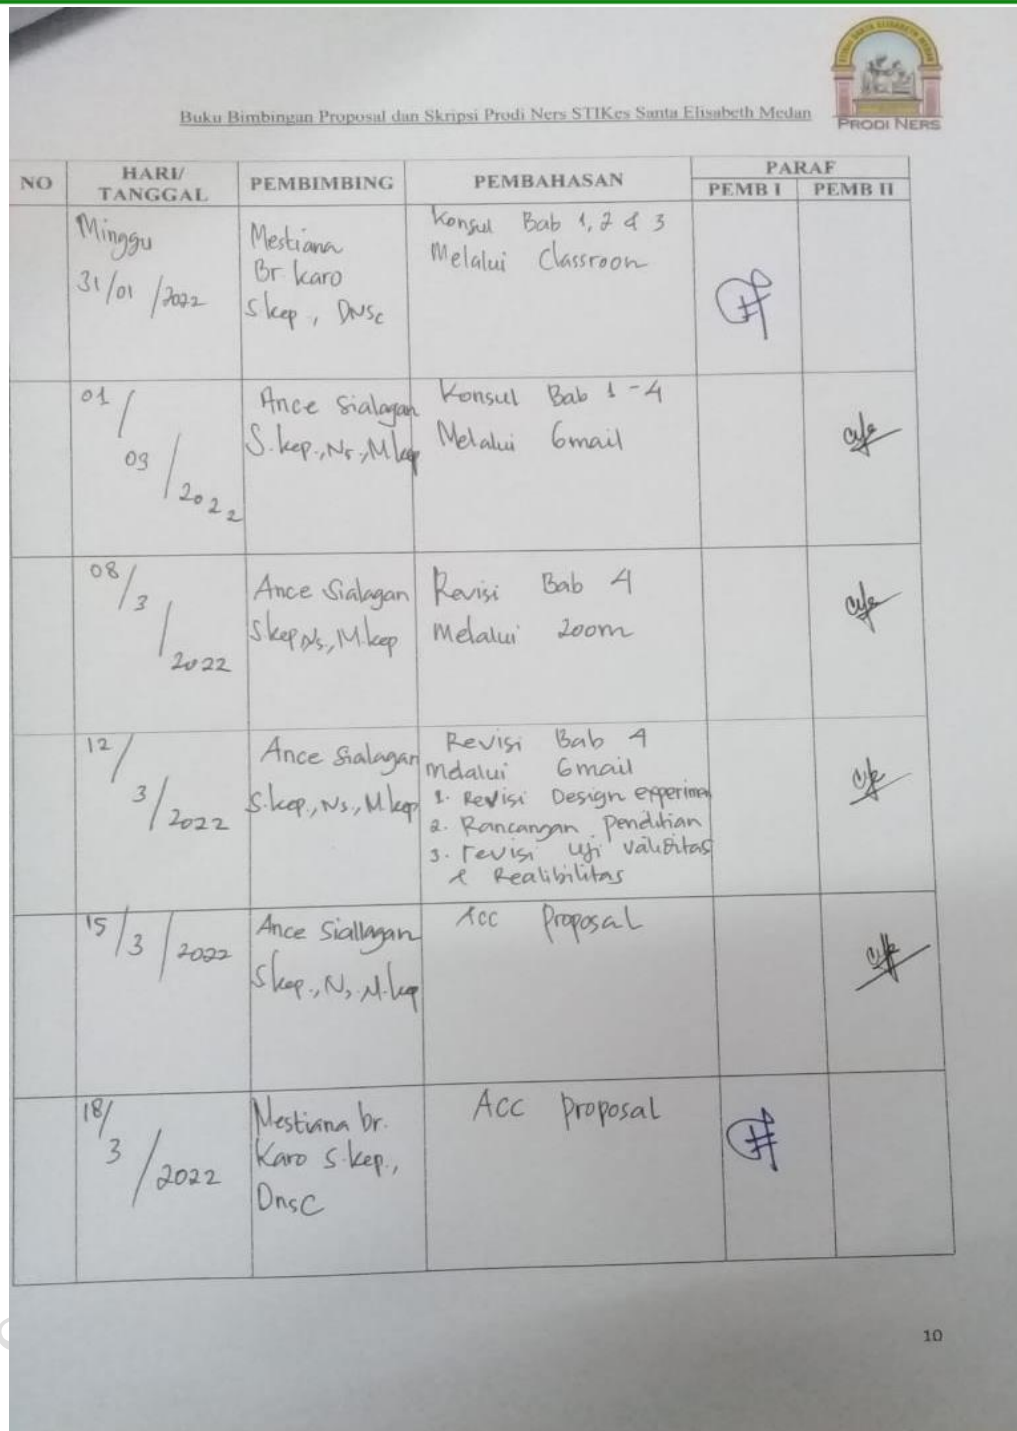 Buku Bimbingan Proposal dan Skripsi Prodi Ners STIKes Santa Elisabeth Medan
PRODI NERS
NO
HARI/
TANGGAL
PEMBIMBING
PEMBAHASAN
PARAF
PEMB I
PEMB II
Minggu
31/01/2022
Mestiana
Br. karo
Skep., DNSc
Konsul Bab 1, 2 & 3
Melalui Classroon
01/
03/
2022
Ance Sialagan
S.kep.,Ns.,M.kep
Konsul Bab 1-4
Melalui Gmail
08/
3/
2022
Ance Sialagan
Skep Ns., M.kep
Revisi Bab 4
Melalui Zoom
12/
3/2022
Ance Sialagan
S.kep., Ns., M.kep
Revisi Bab 4
melalui Gmail
1. Revisi Design experimen
2. Rancangan Penelitian
3. revisi uji validitas
& Realibilitas
15/3/2022
Ance Siallagan
Skep., Ns. M.kep
Acc Proposal
18/
3/2022
Mestiana br.
Karo S.kep.,
DnsC
Acc proposal
10